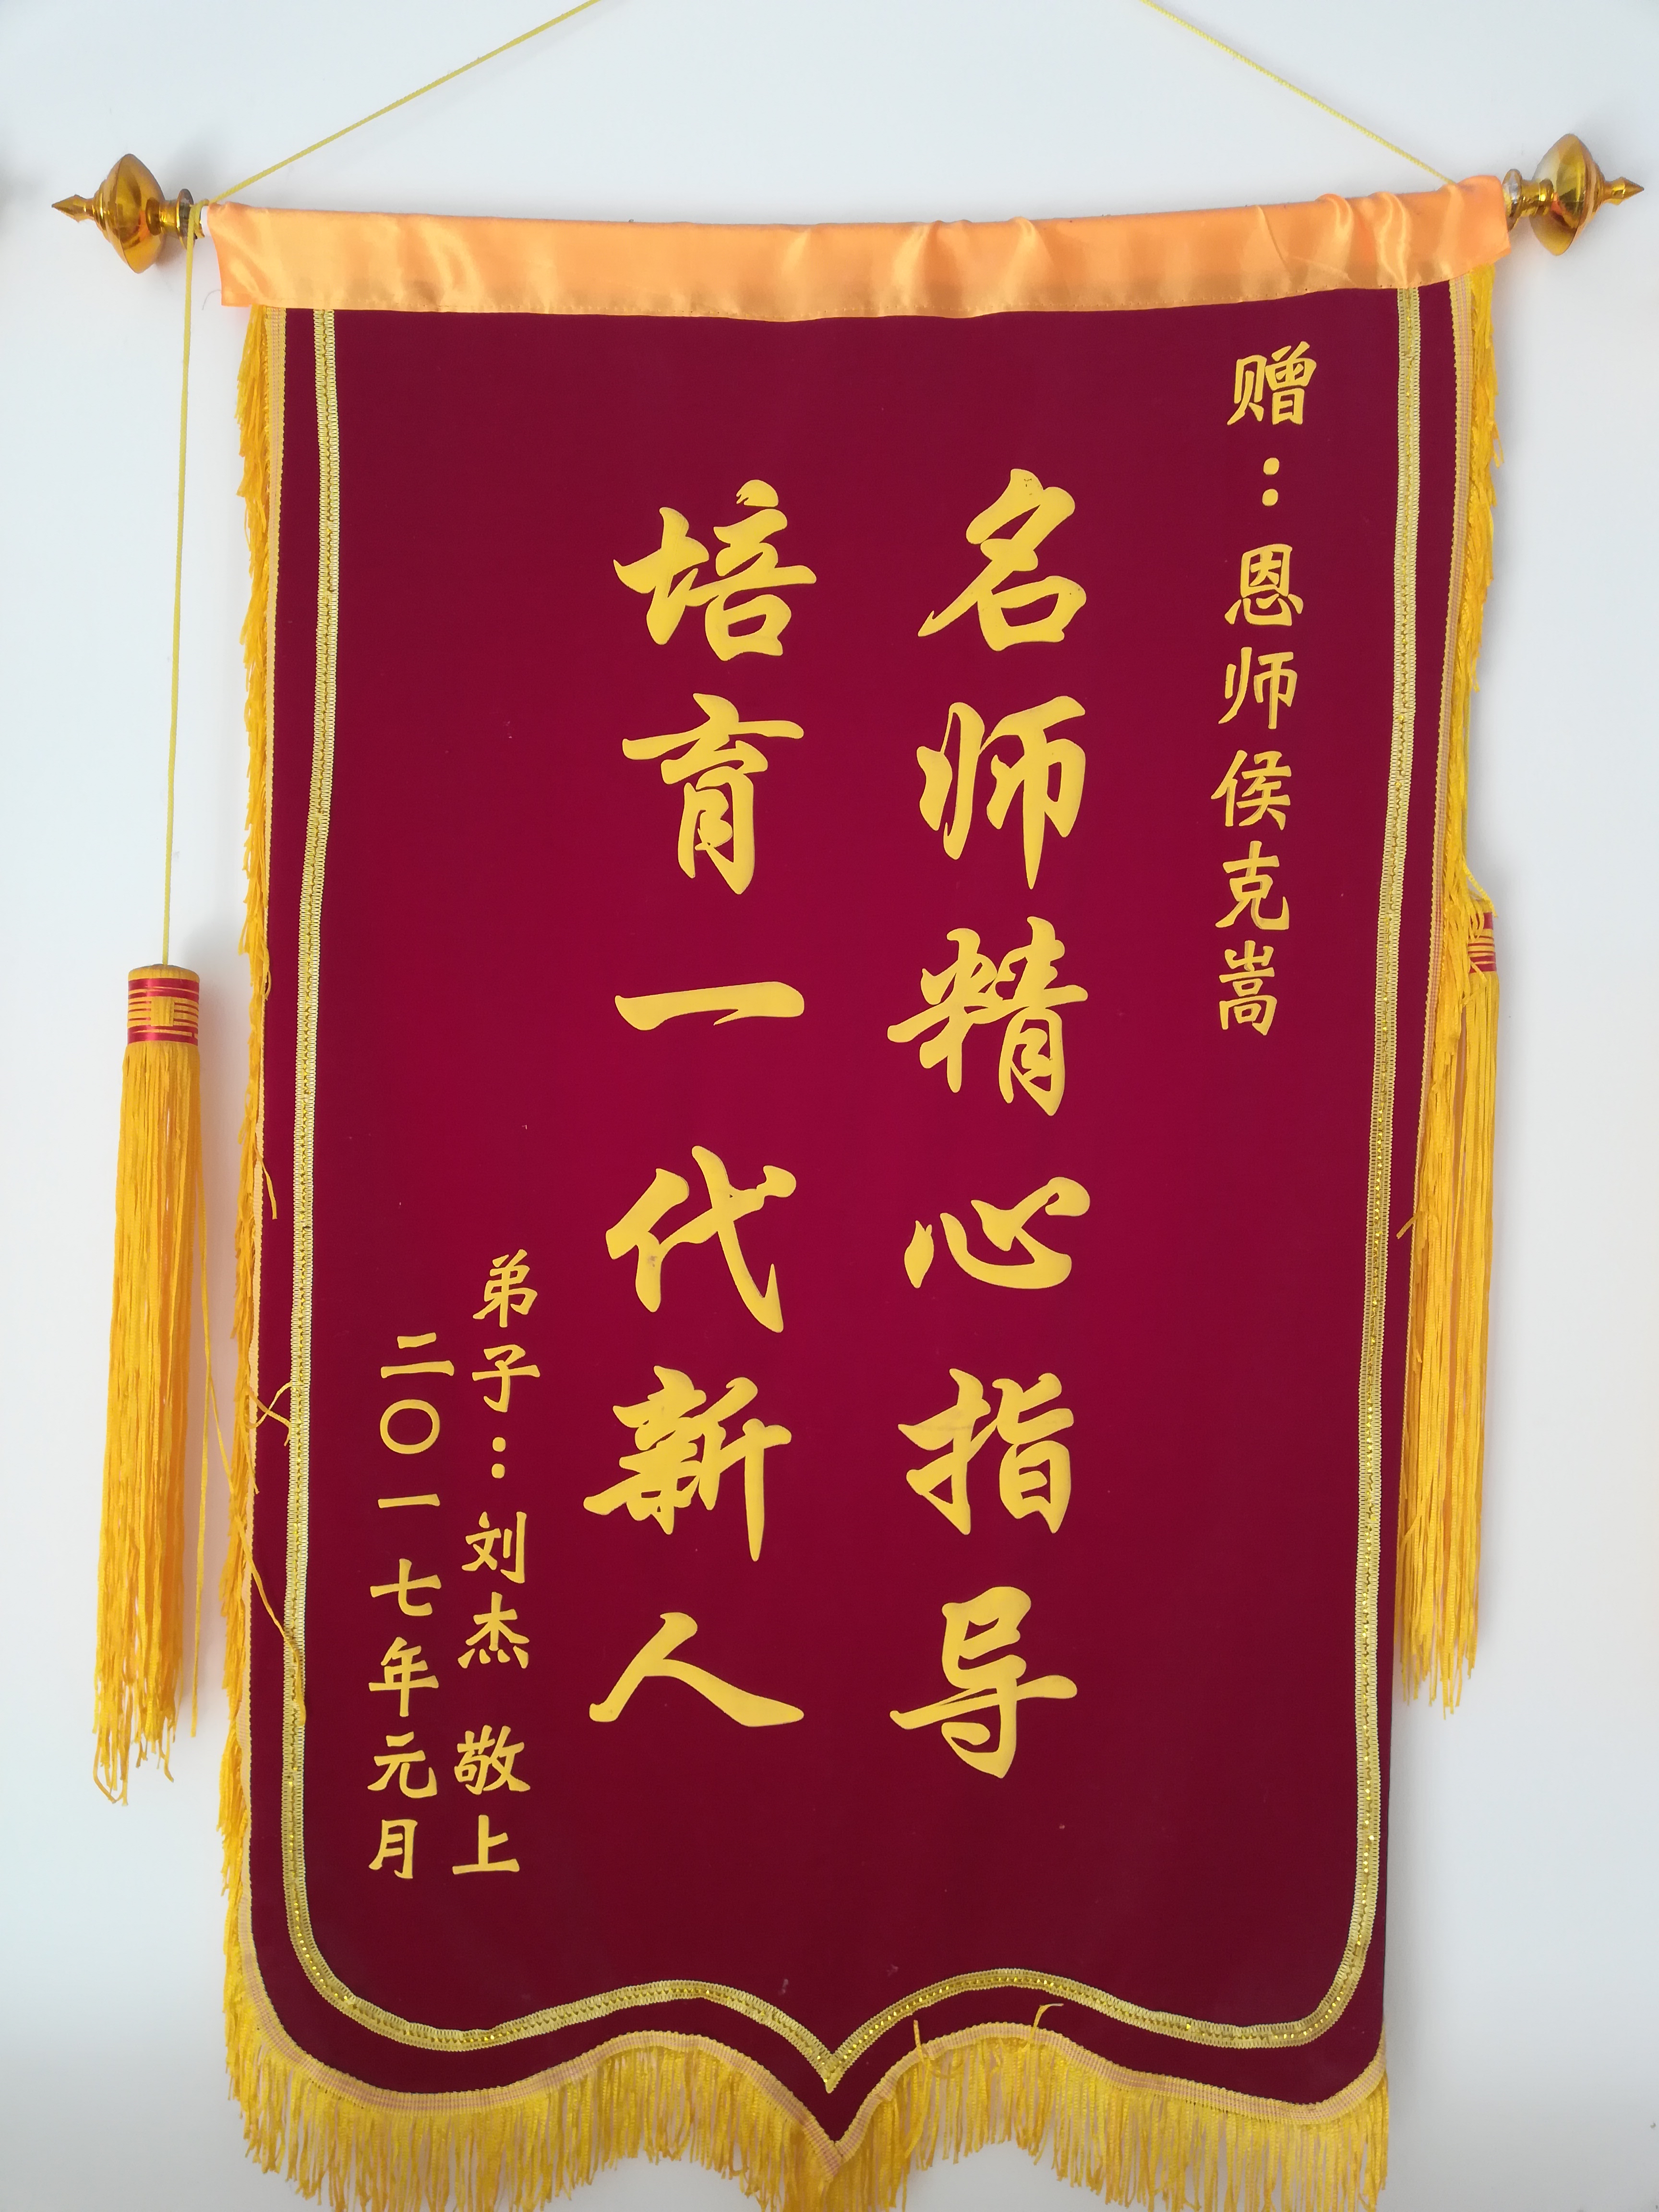 赠：恩师侯克嵩
名师精心指导
培育一代新人
弟子：刘杰 敬上
二〇一七年元月